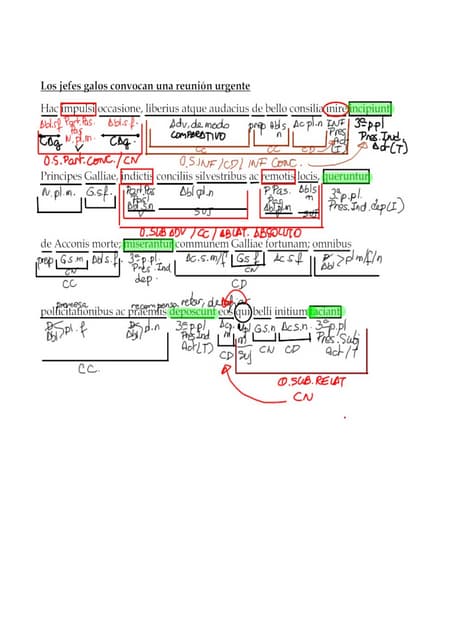 Los jefes galos convocan una reunión urgente
Hac impulsi occasione, liberius atque audacius de bello consilia inire incipiunt
Abl.s.f Part.Pas. Abl.s.f. Adv. de modo prep Abl.s Ac pl.n INF 3ª p.pl
Pas N.pl.m. COMPARATIVO n Pres. Pres. Ind.
CAg V CAg Act Act (T)
(I)
CC CC CD
O.S. Part. CONC. / CN O.S INF / CD / INF CONC.
Principes Galliae, indictis conciliis silvestribus ac remotis locis, queruntur
N. pl.m. G.s.f. Part. Pas Abl pl.n P. Pas. 3ª p.pl.
Pres. Ind. dep (I)
V SUJ SUJ
O. SUB ADV / CC / ABLAT. ABSOLUTO
de Acconis morte; miserantur communem Galliae fortunam; omnibus
prep G.s.m Abl s. f 3ª p.pl. Ac.s.m/f G.s f Ac s.f Abl pl m/f/n
CN Pres. Ind CN
CC dep. CD
promesa recompensa
pollicitationibus ac praemiis deposcunt eos qui belli initium faciant
pl. f pl.n 3ª p.pl G.s.n Ac.s.n. 3ª p.pl
Pres. Ind Pres. Subj
Act (T) CD SUJ CN CD Act/T
CC.
O. SUB. RELAT
CN